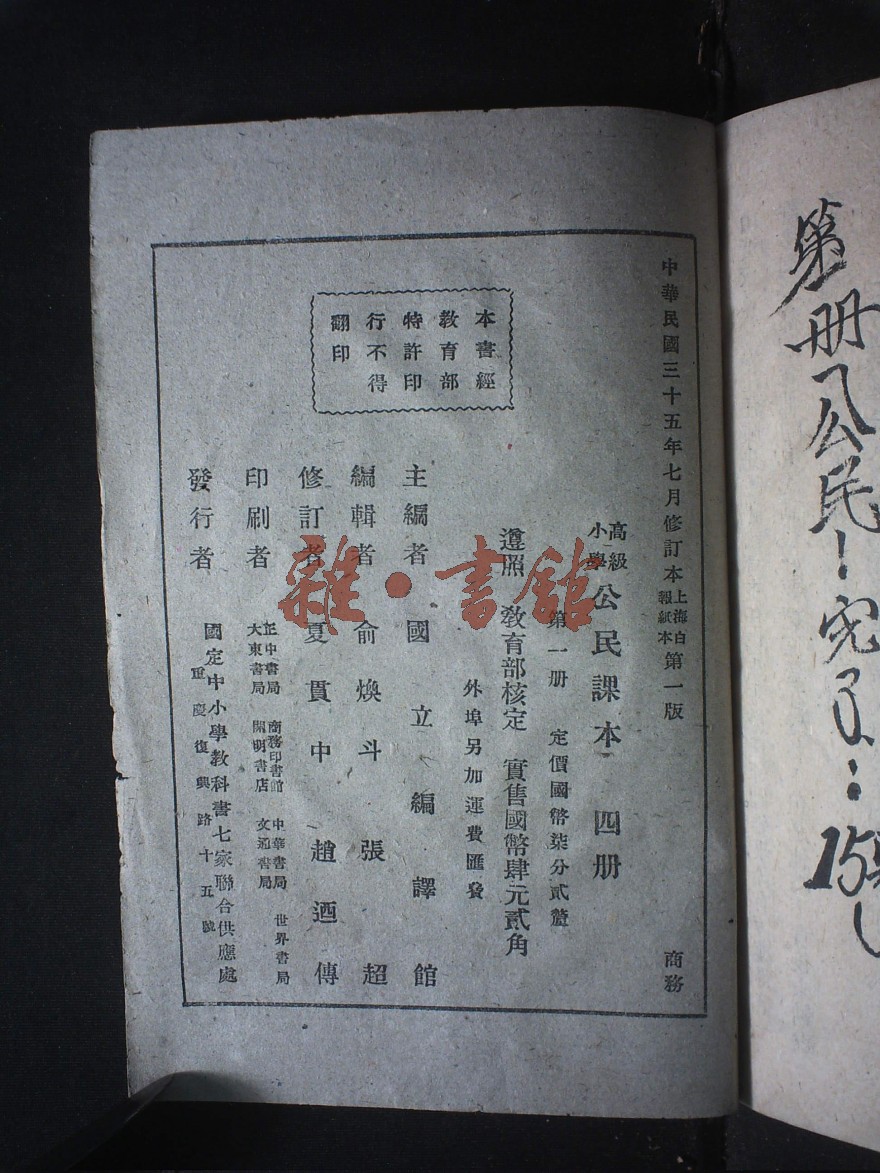 中華民國三十五年七月修訂本上海白報紙本第一版
商務
高級小學公民課本 四册
第一册 定價國幣柒分貳釐
遵照 敎育部核定 實售國幣肆元貳角
外埠另加運費匯費
本書經
敎育部
特許印
行不得
翻印
主編者 國立編譯館
編輯者 俞煥斗 張超
修訂者 夏貫中 趙迺傳
印刷者 正中書局 商務印書館 中華書局 世界書局
大東書局 開明書店 文通書局
發行者 國定中小學敎科書七家聯合供應處
重慶復興路十五號
雜·書館
第 册公民！完了：
15